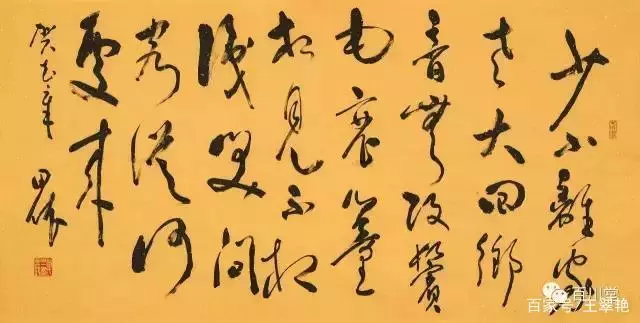 少小離家
老大回鄉
音無改鬢
毛衰兒童
相見不相
識笑問
客從何
處来
癸巳年
百川堂
百家号/王翠艳